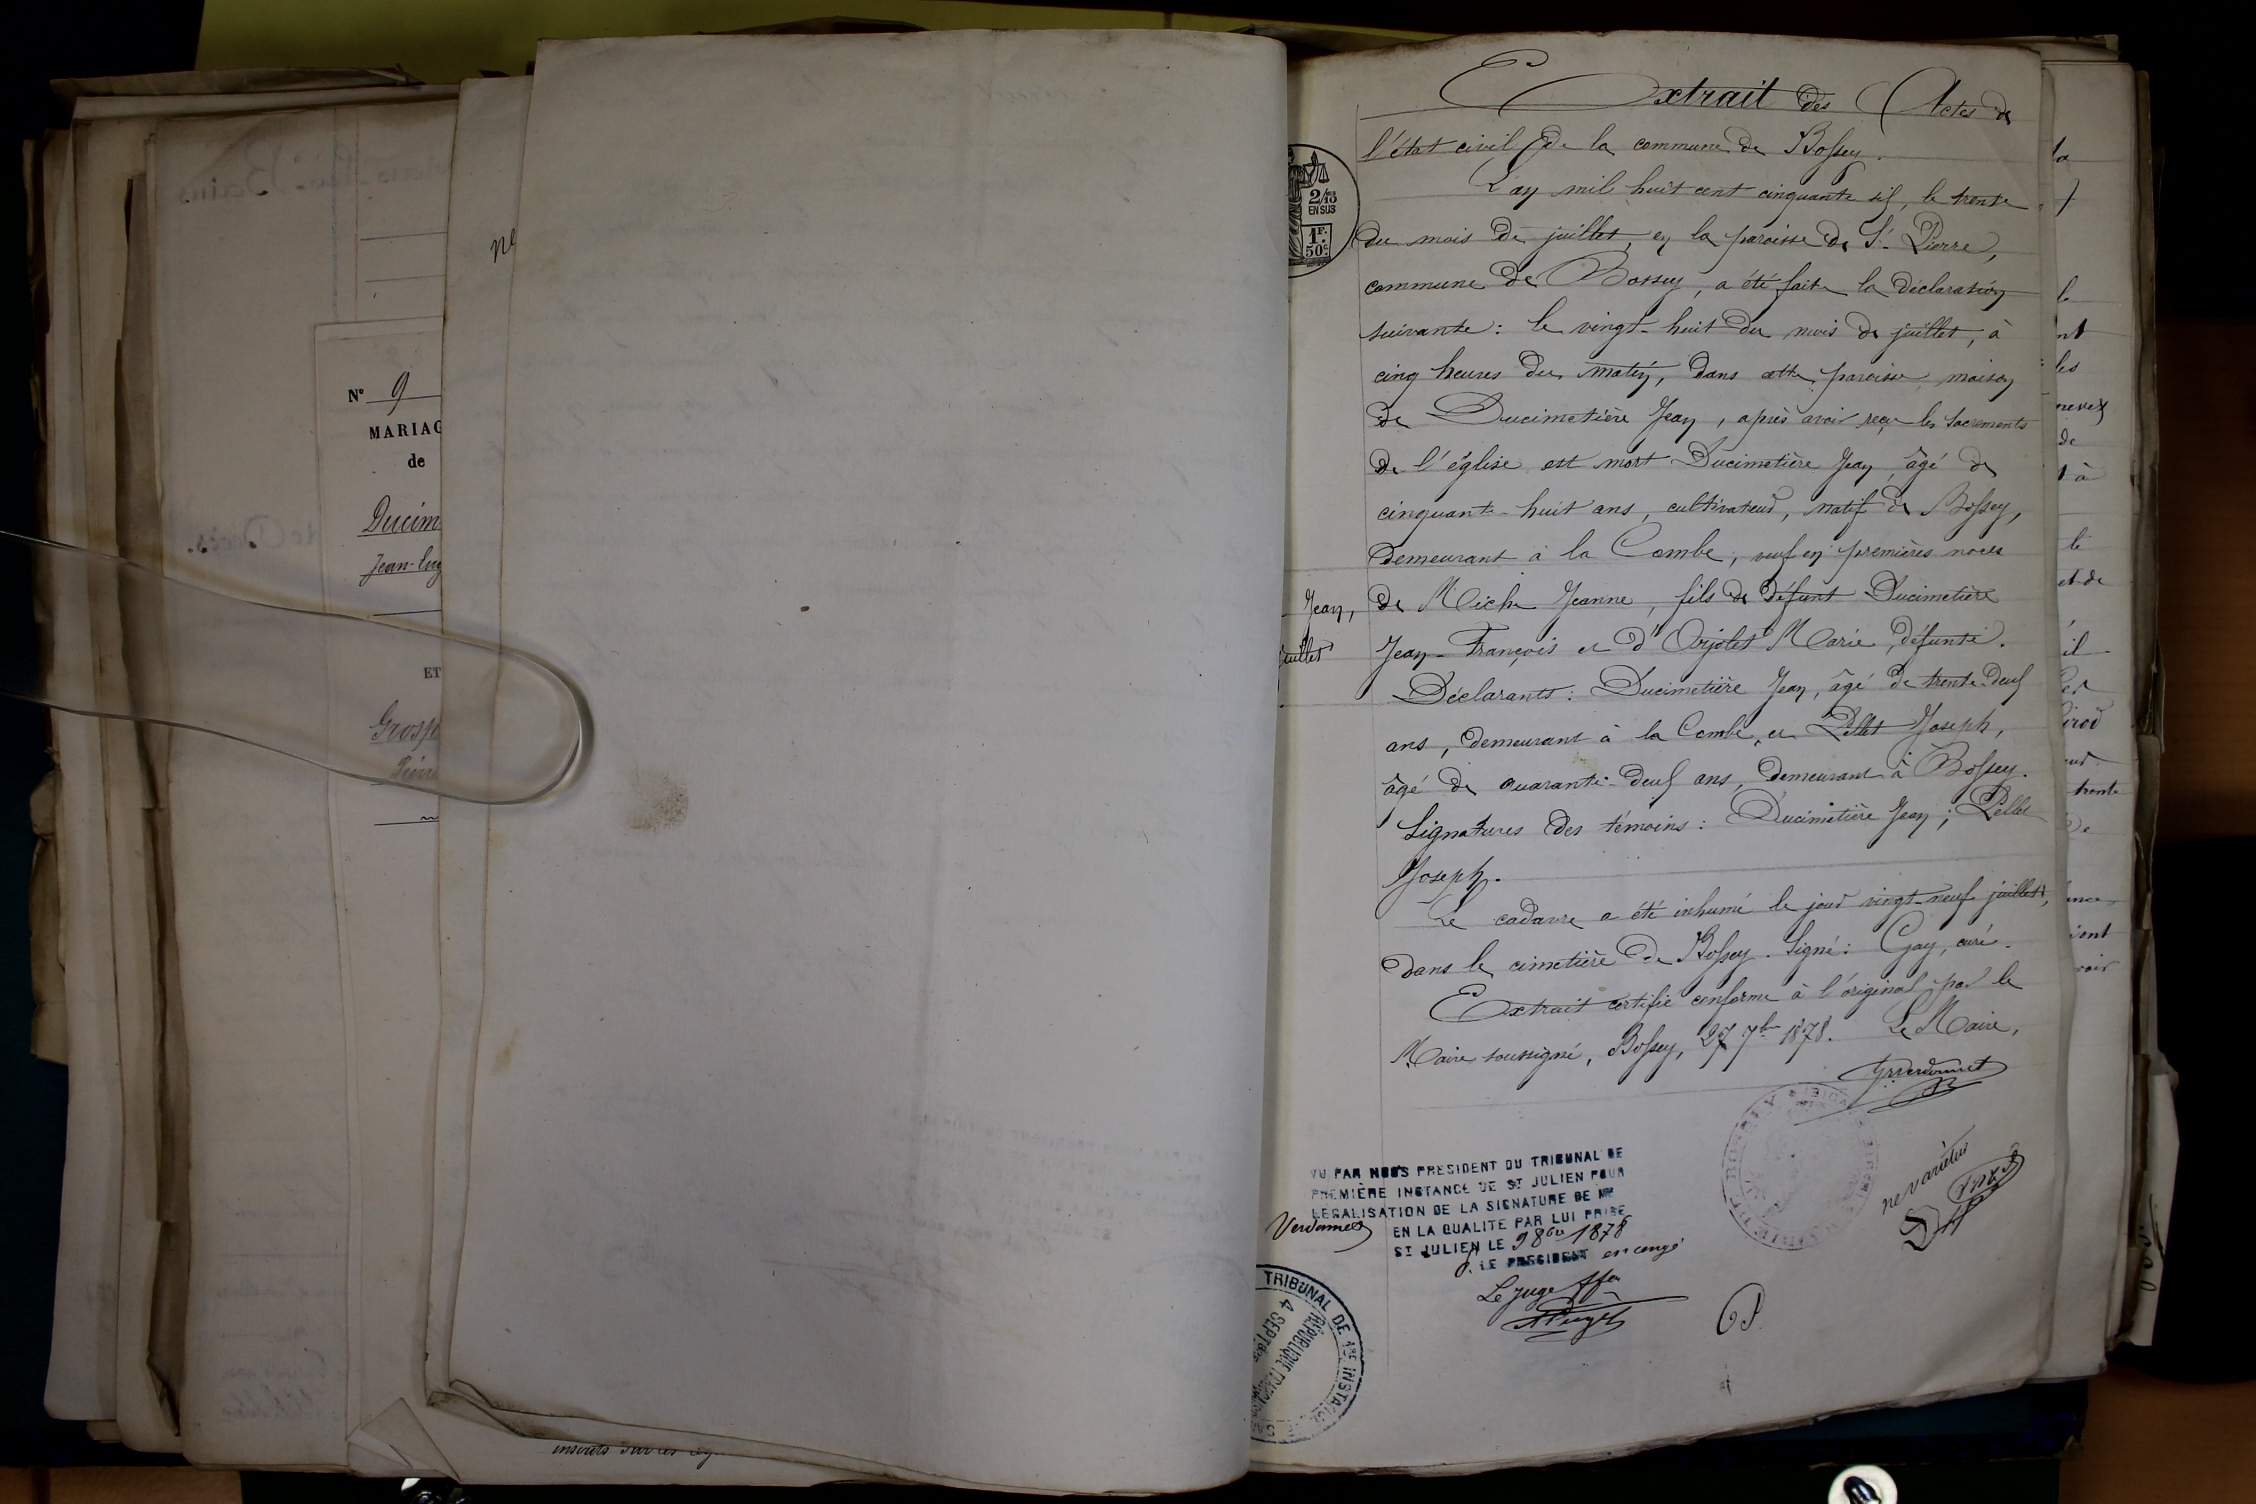 Extrait des Actes de
l'état civil de la commune de Bossey.
L'an mil huit cent cinquante six, le trente
du mois de juillet, en la paroisse de St Pierre,
commune de Bossey, a été faite la déclaration
suivante : le vingt-huit du mois de juillet, à
cinq heures du matin, dans cette paroisse, maison
de Ducimetière Jean, après avoir reçu les sacrements
de l'église est mort Ducimetière Jean, âgé de
cinquante-huit ans, cultivateur, natif de Bossey,
demeurant à la Combe, veuf en premières noces
de Miche Jeanne, fils de défunt Ducimetière
Jean-François et d'Orjolet Marie, défunte.
Déclarants : Ducimetière Jean, âgé de trente-deux
ans, demeurant à la Combe, et Pellet Joseph,
âgé de quarante-deux ans, demeurant à Bossey.
Signatures des témoins : Ducimetière Jean ; Pellet
Joseph.
Le cadavre a été inhumé le jour vingt-neuf juillet,
dans le cimetière de Bossey. Signé : Gay, curé.
Extrait certifié conforme à l'original par le
Maire soussigné, Bossey, 27 7bre 1878. Le Maire,
Jean,
juillet
2/10
EN SUS
1F.
50c.
VU PAR NOUS PRESIDENT DU TRIBUNAL DE
PREMIÈRE INSTANCE DE ST JULIEN POUR
LEGALISATION DE LA SIGNATURE DE MR
Verdonnet EN LA QUALITE PAR LUI PRISE
ST JULIEN LE 9 8bre 1878
P. LE PRESIDENT en congé
Le juge
ne varietur
TRIBUNAL DE 1RE INSTANCE
RÉPUBLIQUE FRANÇAISE
4 SEPT.
No 9
MARIAG
de
Ducim
Jean-Eug
ET
Gross
ne
inscrits sur les